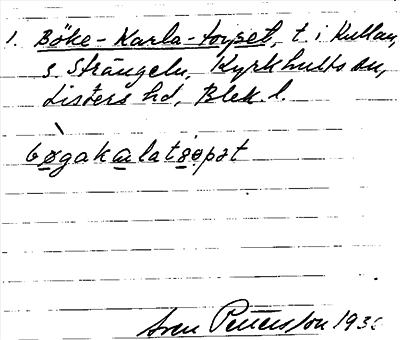 1. Böke-Karla-torpet, t. i Kullan,
s. Strångeln, Kyrkhults sn,
Listers hd, Blek. l.
bøgakalatsopət
Sven Pettersson 193